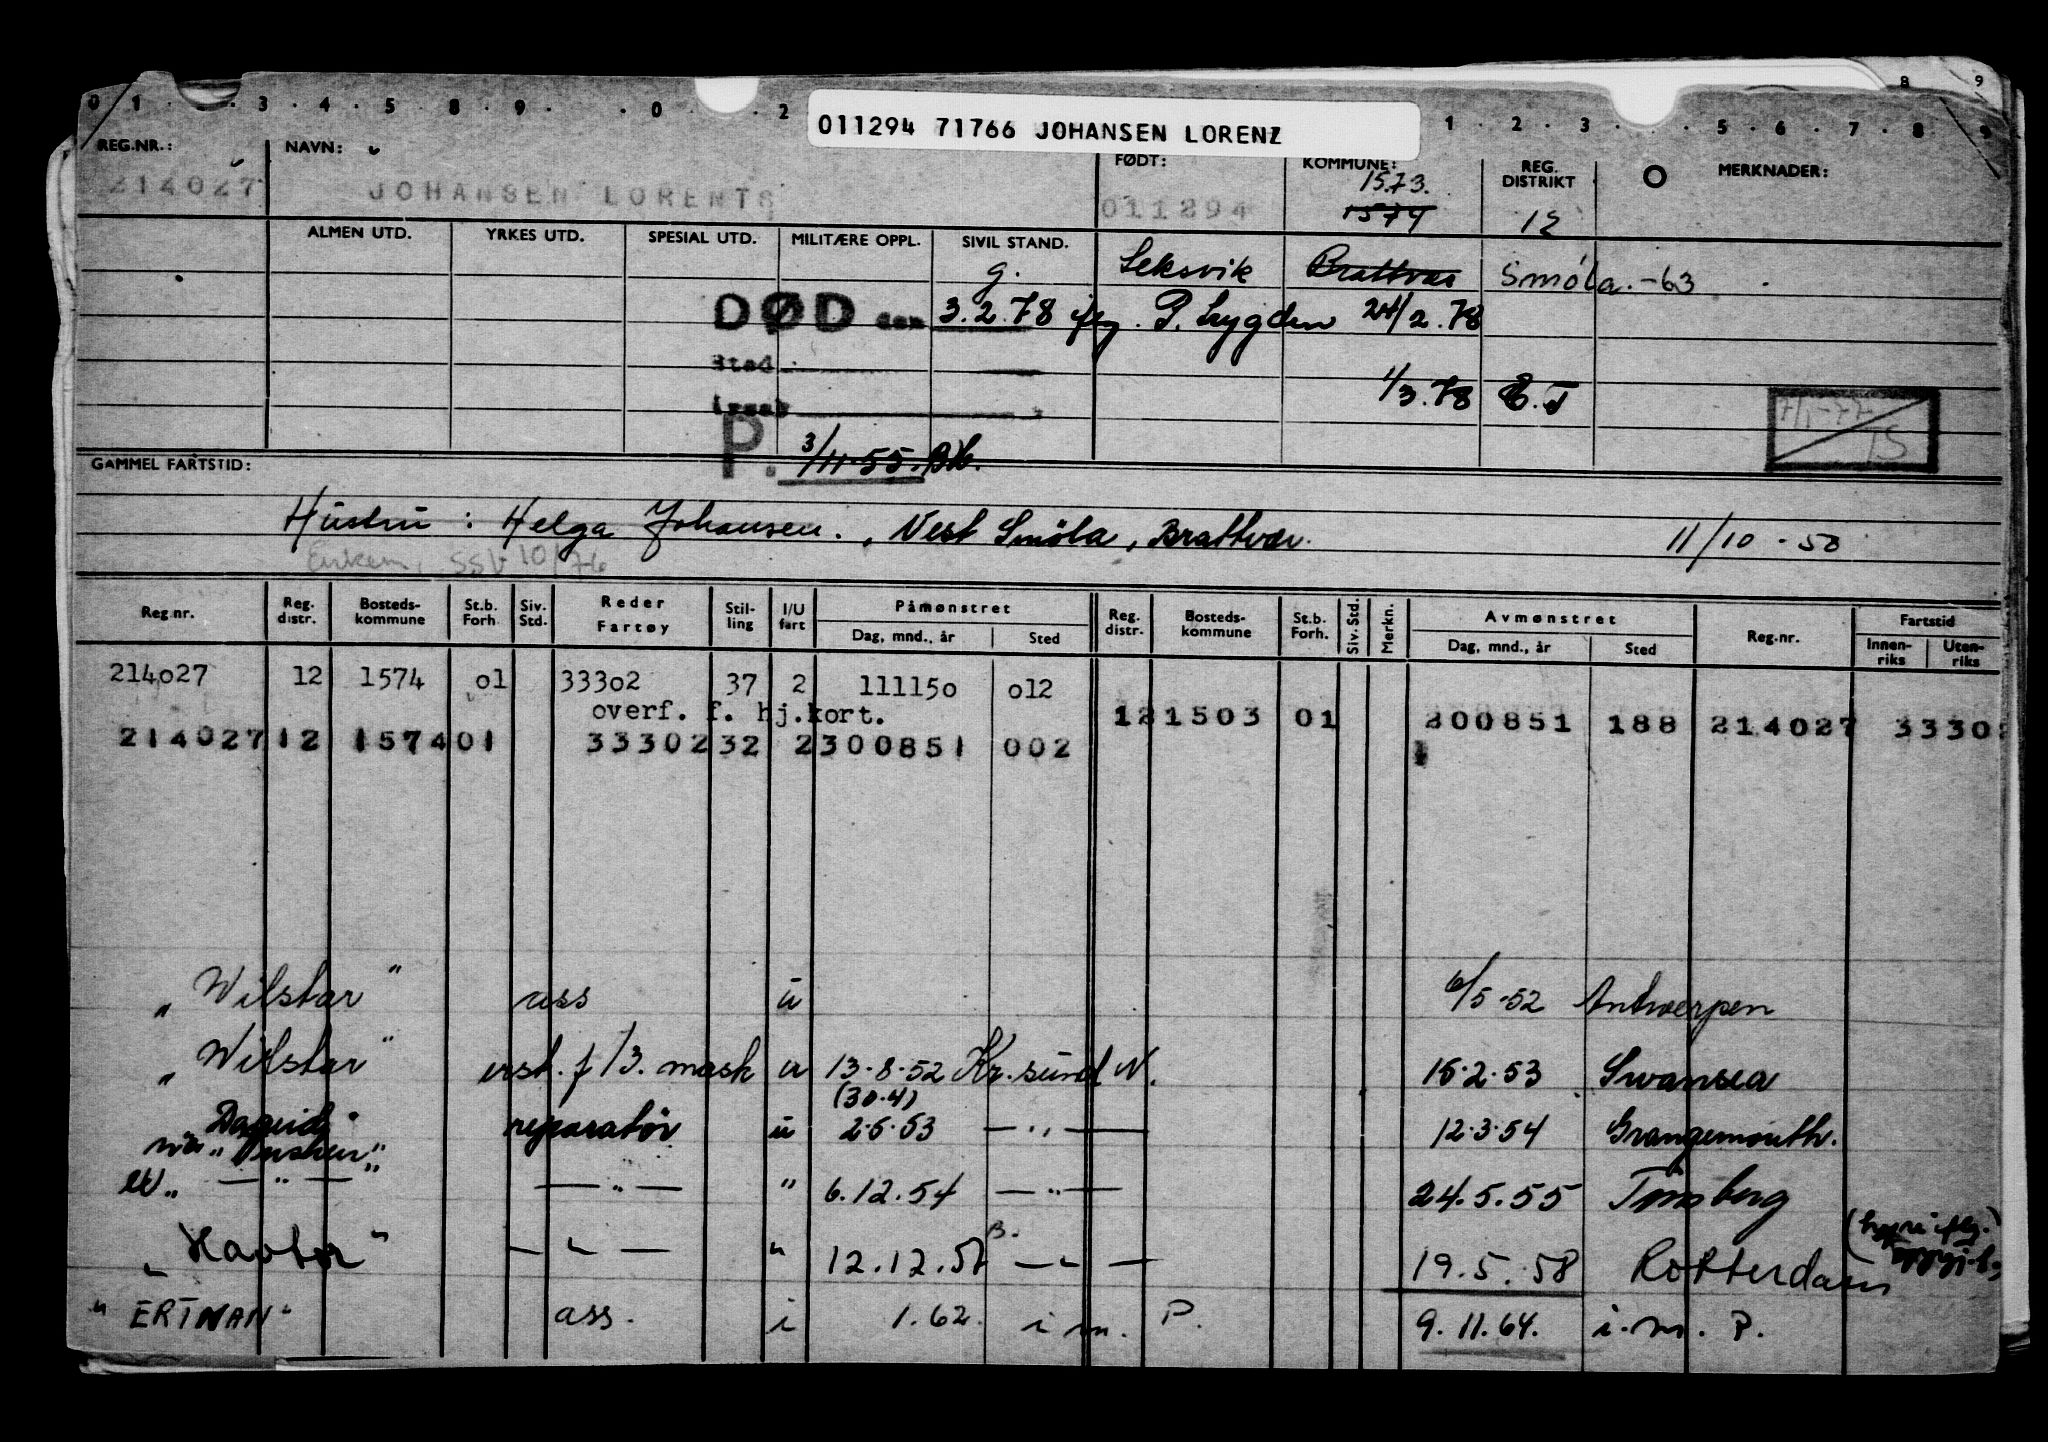 0 1 . . 3 . 4 . 5 . 8 . 9 . . 0 . 2 1 . 2 . 3 . . 5 . 6 . 7 . 8 . 9
8 9
011294 71766 JOHANSEN LORENZ
REG.NR.: NAVN: FØDT: KOMMUNE: REG. DISTRIKT MERKNADER:
1573.
214027 JOHANSEN LORENTS 011294 1574 12
ALMEN UTD. YRKES UTD. SPESIAL UTD. MILITÆRE OPPL. SIVIL STAND.
g. Leksvik Brattvær Smöla.-63
DØD den 3.2.78 iflg. P. Lygden 24/2.78
Sted
1/3.78 E.T
7/1-77 TS
P. 3/11-55.
GAMMEL FARTSTID:
Hustru : Helga Johansen. , Vest Smöla, Brattvær. 11/10-50
Enken, SSV 10/76
Reg.nr. Reg. distr. Bosteds- kommune St.b. Forh. Siv. Std. Reder Fartøy Stil- ling I/U fart Påmønstret Dag, mnd., år Sted Reg. distr. Bosteds- kommune St.b. Forh. Siv. Std. Merkn. Avmønstret Dag, mnd., år Sted Reg.nr. Fartstid Innen- riks Uten- riks
214027 12 1574 01 33302 37 2 111150 012
overf. f. hj.kort. 121503 01 200851 188 214027 3330
214027 12 1574 01 33302 32 2 300851 002
"Wilstar" ass u 6/5-52 Antwerpen
"Wilstar" erst. f/3. mask u 13-8-52 Kr.sund N. 15-2-53 Swansea
(30-4)
Dageid reparatør u 2-5-53 — " — 12-3-54 Grangemouth.
— " — — " — " 6.12.54 — " — 24.5.55 Tønsberg
"Havtor" — " — " 12.12.57 — " — 19.5.58 Rotterdam
"ERTNAN" ass. i 1.62. i m. P. 9.11.64. i.m. P.